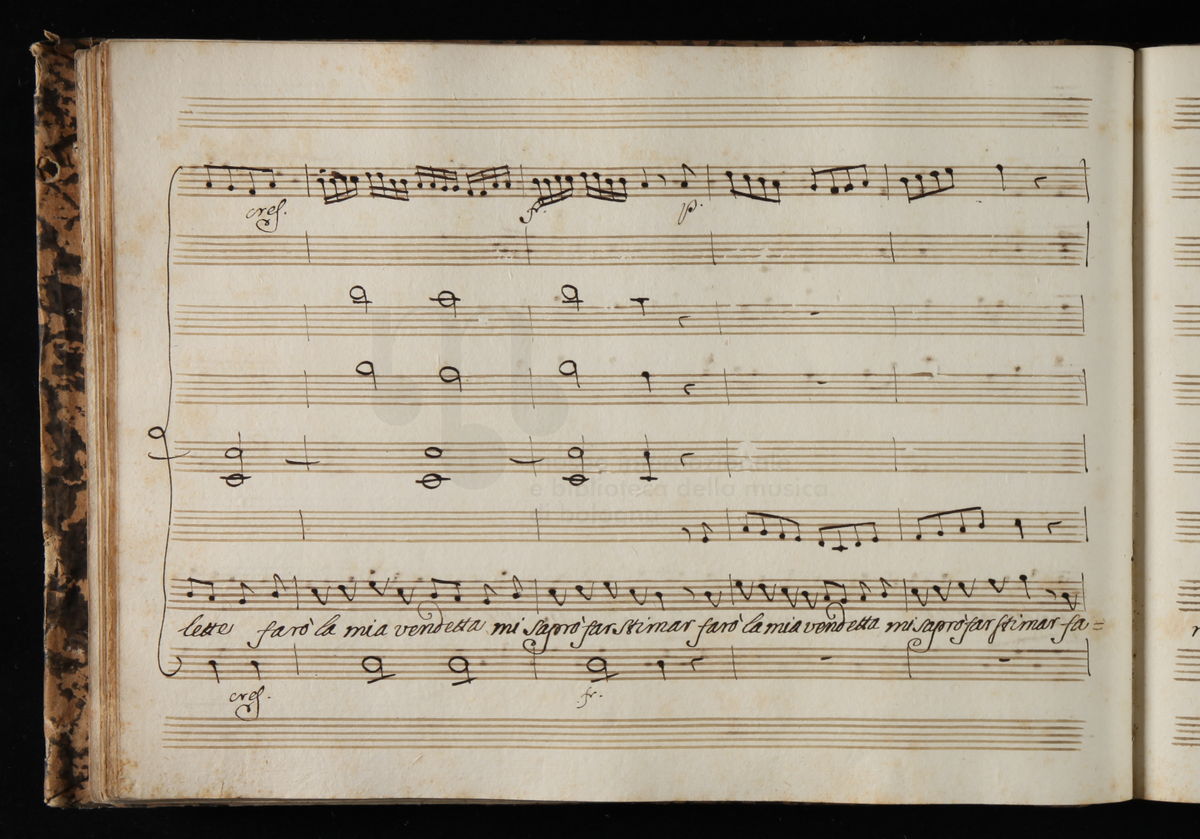 cresc.
fr. p.
museo internazionale
e biblioteca della musica
di bologna
lette farò la mia vendetta mi sapro far stimar farò la mia vendetta mi sapro far stimar fa=
cresc. fr.